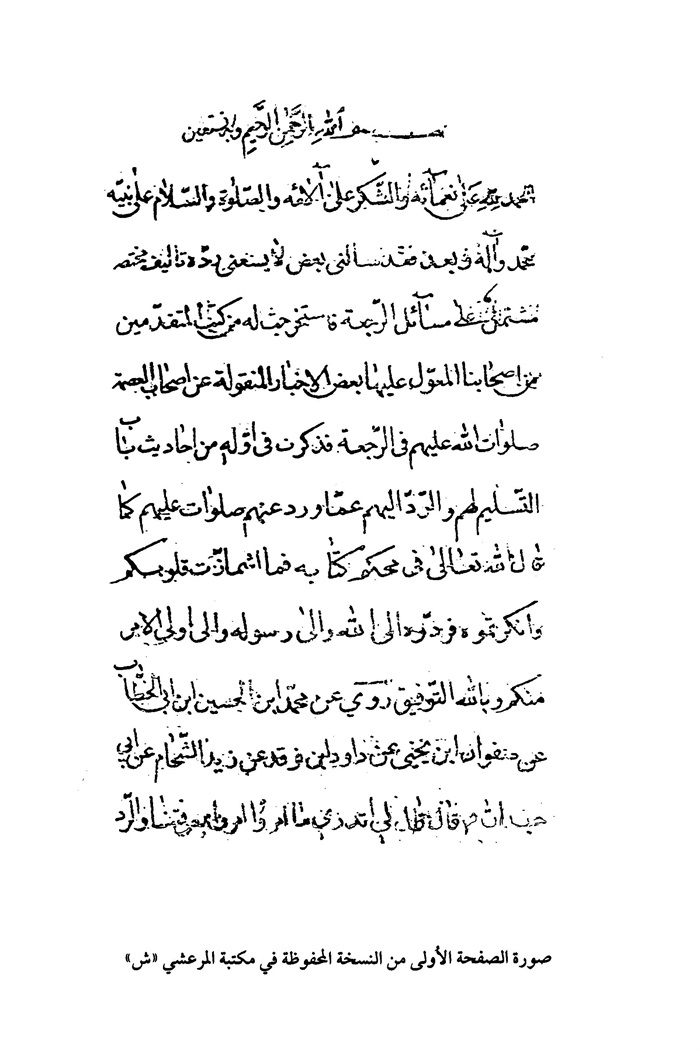 بسم الله الرحمن الرحيم وبه نستعين
الحمد لله على نعمائه والشكر على آلائه والصلوة والسلام على نبيه
محمد وآله وبعد فقد سألنى بعض لا يسعنى رده تاليف مختصر
مشتمل على مسائل الرجعة فاستخرجت له من كتب المتقدمين
من اصحابنا المعول عليها بعض الاخبار المنقولة عن اصحاب العصمة
صلوات الله عليهم فى الرجعة فذكرت فى اوله من احاديث باب
التسليم لهم والرد اليهم عما ورد عنهم صلوات عليهم كما
قال الله تعالى في محكم كتابه فما اشمازت قلوبكم
وانكرتموه فردوه الى الله والى رسوله والى اولى الامر
منكم وبالله التوفيق روي عن محمد ابن الحسين ابن ابي الخطاب
عن صفوان ابن يحيى عن داود بن فرقد عن زيد الشحام عن ابي
عبد الله قال قال لي اتدري ما امروا امروا بمعرفتنا والرد
صورة الصفحة الأولى من النسخة المحفوظة في مكتبة المرعشي «ش»